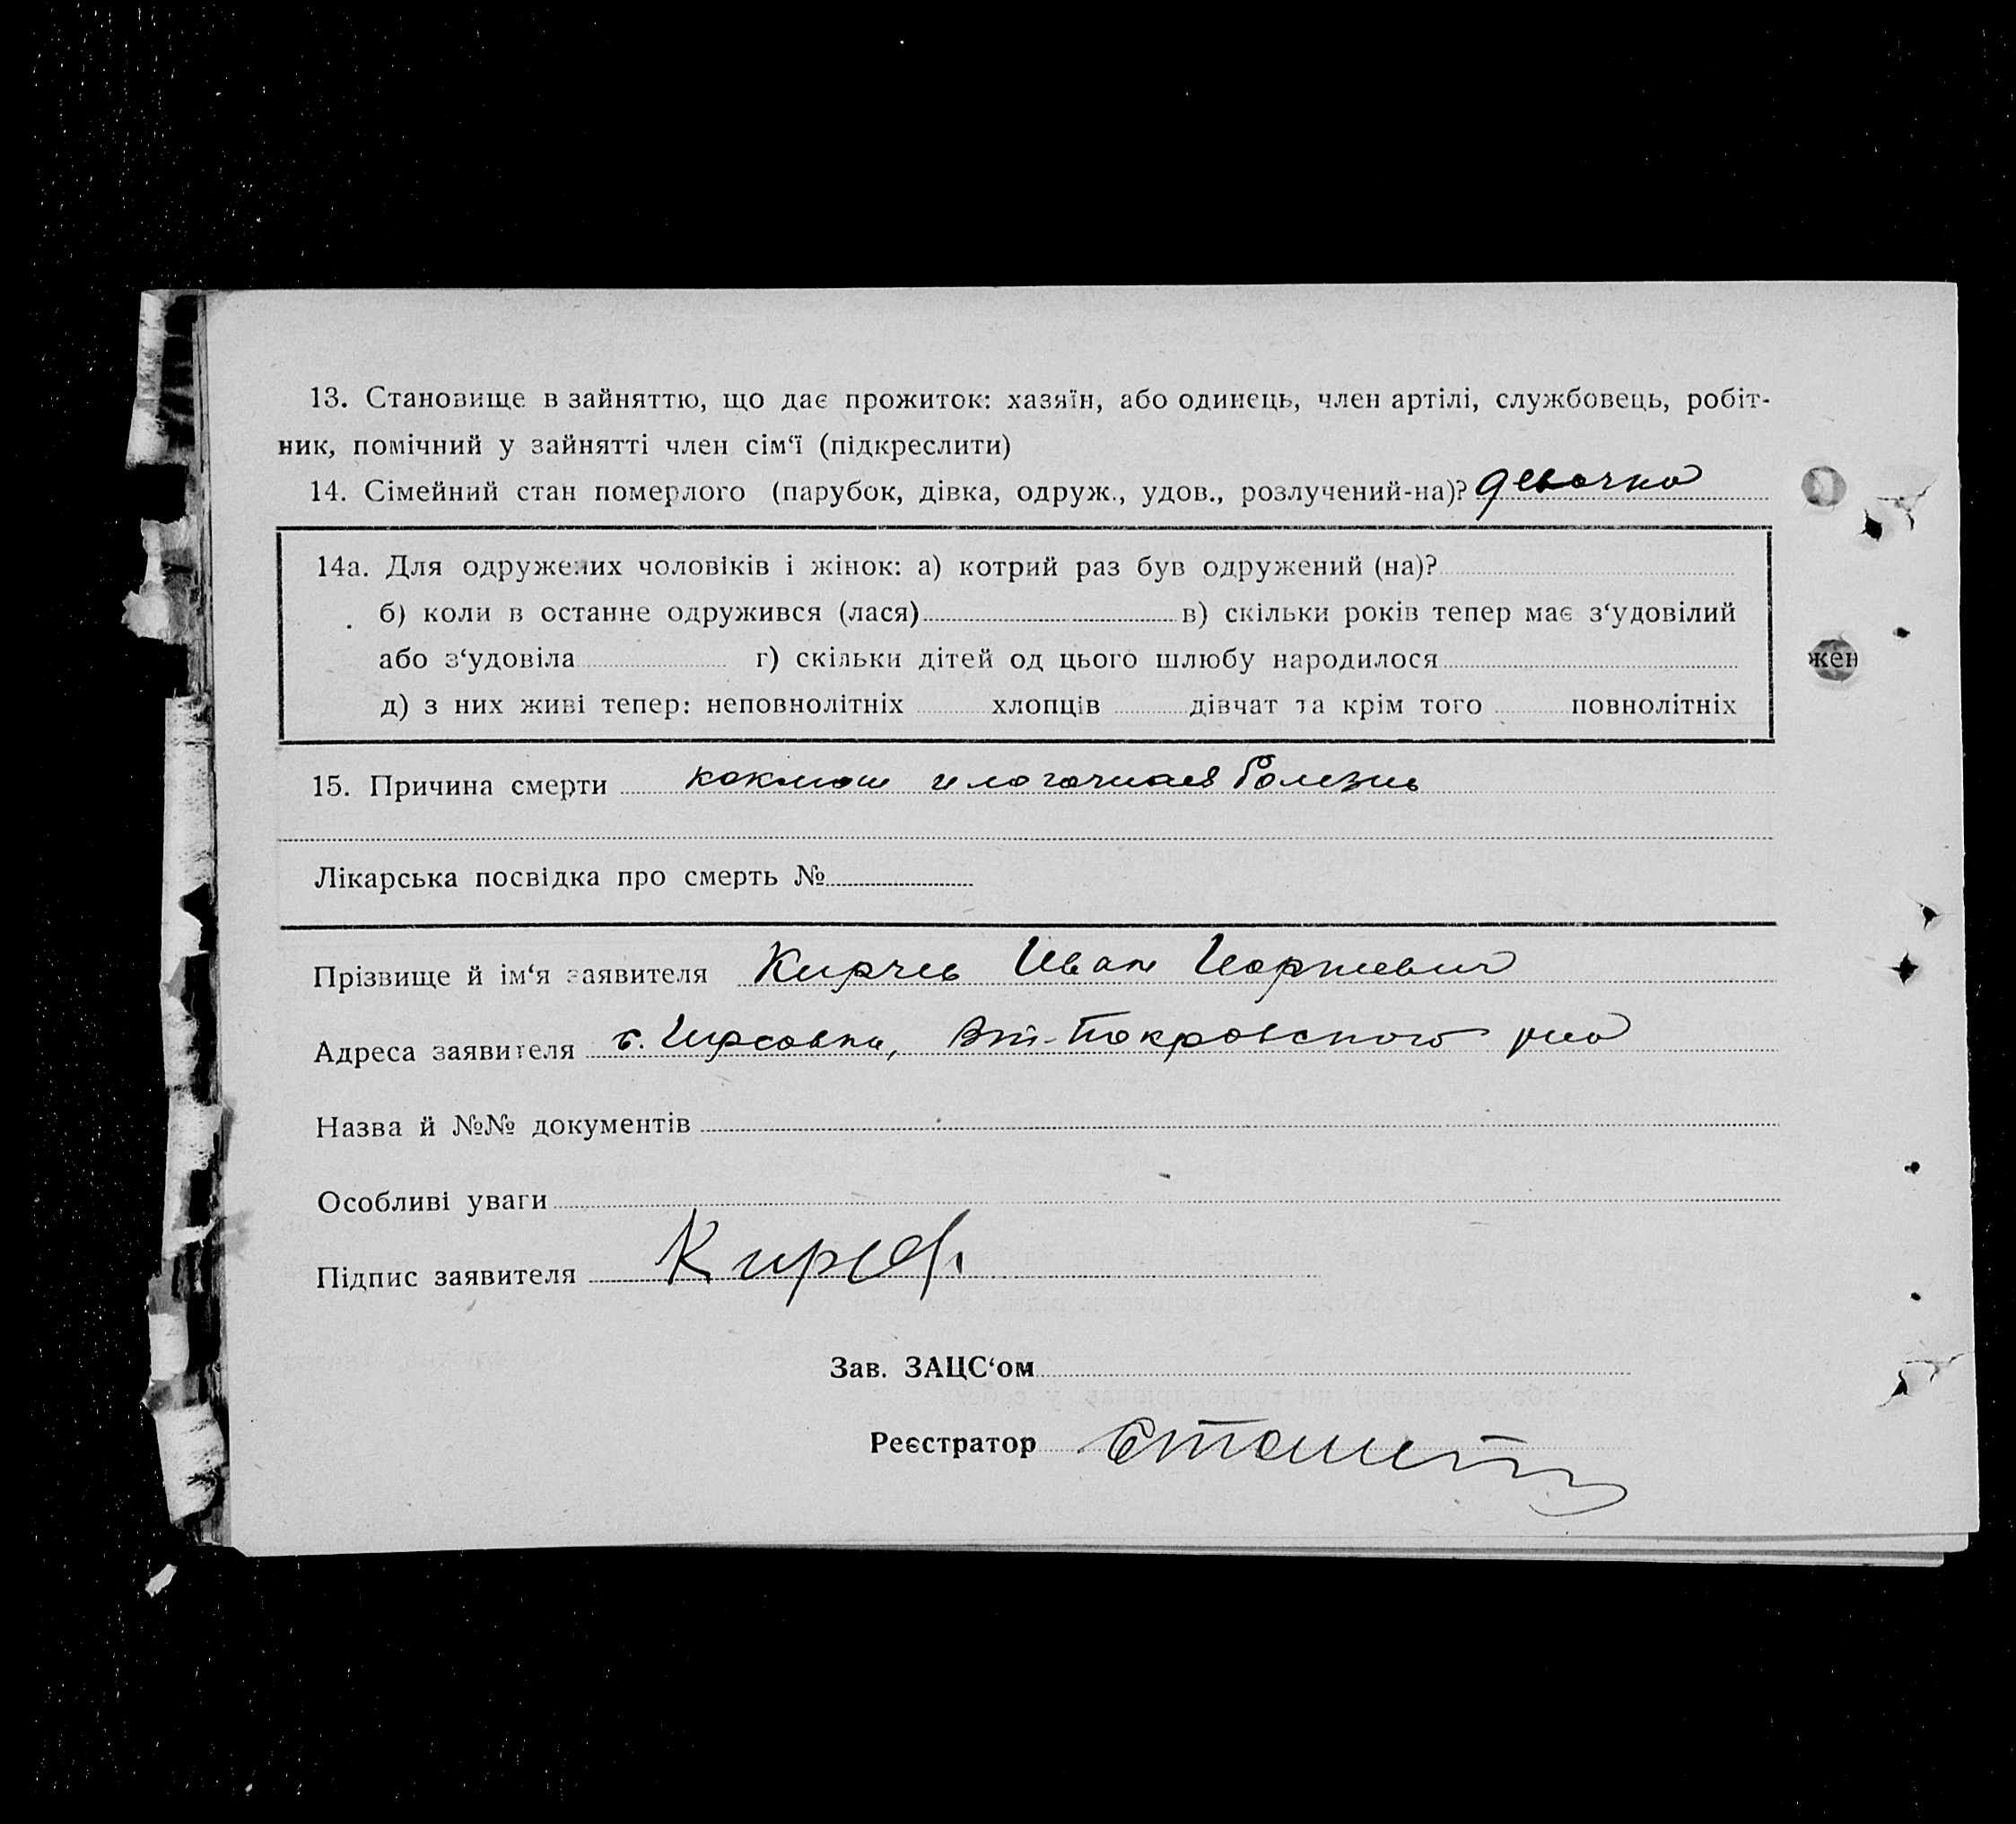 13. Становище в зайняттю, що дає прожиток: хазяїн, або одинець, член артілі, службовець, робіт-
ник, помічний у зайнятті член сім‘ї (підкреслити)
14. Сімейний стан померлого (парубок, дівка, одруж., удов., розлучений-на)? девочка
14а. Для одружених чоловіків і жінок: а) котрий раз був одружений (на)?
б) коли в останне одружився (лася) в) скільки років тепер має з‘удовілий
або з‘удовіла г) скільки дітей од цього шлюбу народилося
жен
д) з них живі тепер: неповнолітніх хлопців дівчат та крім того повнолітніх
15. Причина смерти коклюш болезнь
Лікарська посвідка про смерть №
Прізвище й ім‘я заявителя Кирчев Иван
Адреса заявителя с. Покровского р-на
Назва й №№ документів
Особливі уваги
Підпис заявителя
Зав. ЗАЦС‘ом
Реєстратор